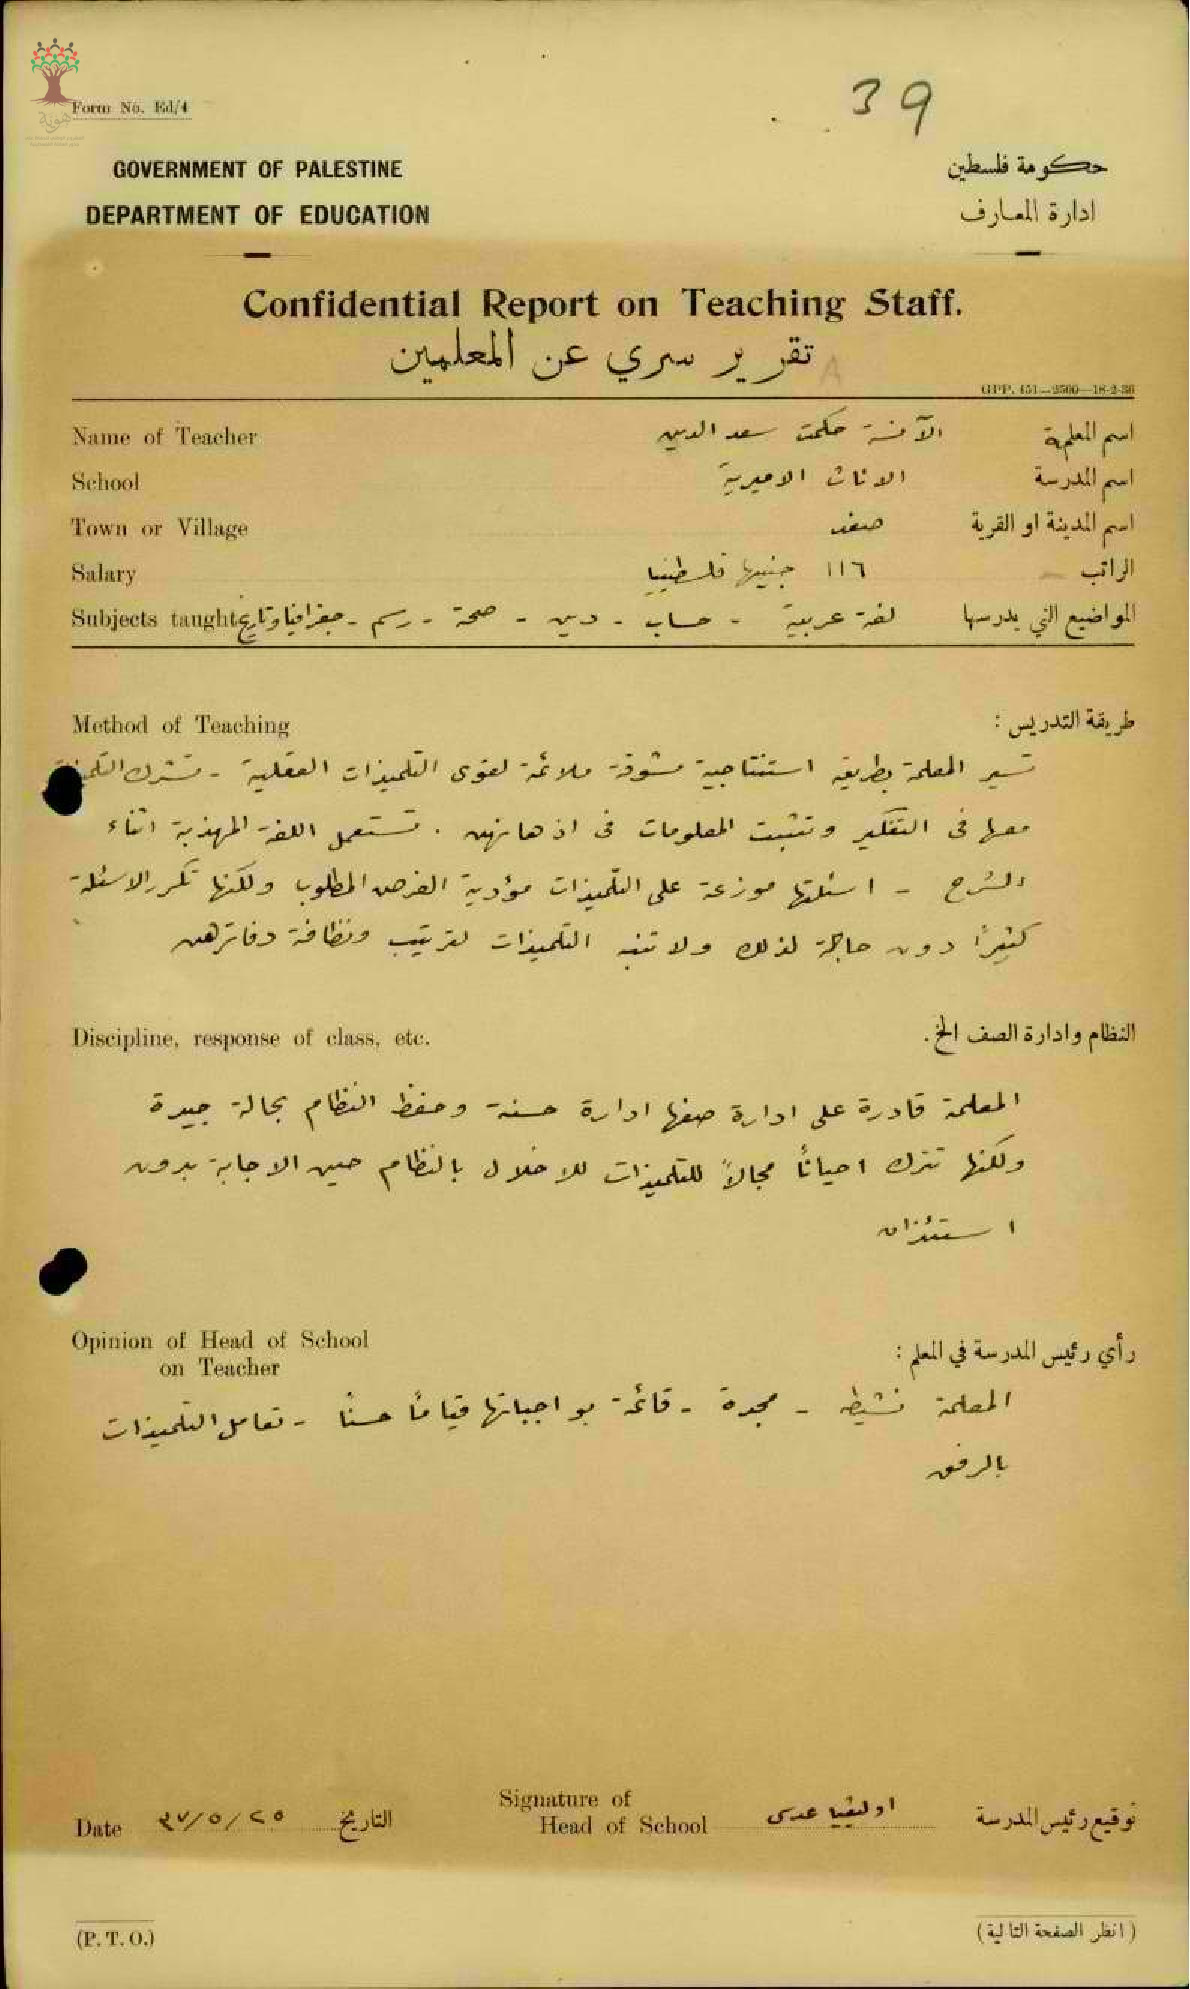 Form No. Ed/4
هوية
39
GOVERNMENT OF PALESTINE
حكومة فلسطين
DEPARTMENT OF EDUCATION
ادارة المعارف
Confidential Report on Teaching Staff.
تقرير سري عن المعلمين
A
GPP. 451—2500—18-2-36
Name of Teacher الآنسة حكمت سعد الدين اسم المعلمة
School الاناث الاميرية اسم المدرسة
Town or Village صفد اسم المدينة او القرية
Salary ١١٦ جنيها فلسطينيا الراتب
Subjects taught لغة عربية - حساب - دين - صحة - رسم - جغرافيا وتاريخ المواضيع التي يدرسها
Method of Teaching طريقة التدريس :
تسير المعلمة بطريقة استنتاجية مشوقة ملائمة لقوى التلميذات العقلية - تشرك التلميذات
معها في التفكير وتثبت المعلومات في اذهانهن . تستعمل اللغة المهذبة اثناء
الشرح - اسئلتها موزعة على التلميذات مؤدية الغرض المطلوب ولكنها تكرر الاسئلة
كثيراً دون حاجة لذلك ولا تنبه التلميذات لترتيب ونظافة دفاترهن
Discipline, response of class, etc. النظام وادارة الصف الخ .
المعلمة قادرة على ادارة صفها ادارة حسنة وحفظ النظام بحالة جيدة
ولكنها تترك احياناً مجالاً للتلميذات للاخلال بالنظام حين الاجابة بدون
استئذان
Opinion of Head of School
on Teacher
رأي رئيس المدرسة في المعلم :
المعلمة نشيطة - مجدة - قائمة بواجباتها قياماً حسناً - تعامل التلميذات
بالرفق
Date ٢٥/٥/٣٧ التاريخ
Signature of
Head of School اوليفيا عدسى توقيع رئيس المدرسة
(P. T. O.) ( انظر الصفحة التالية )